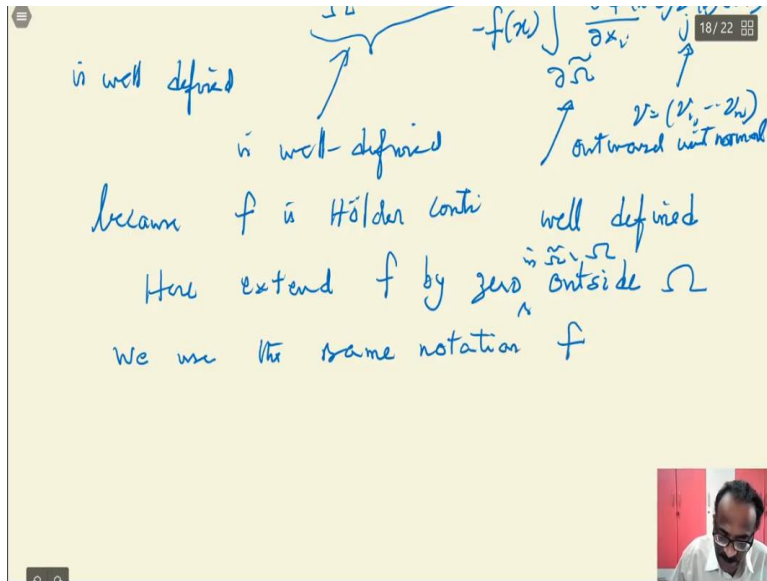 -f(x) ∫ ∂x_i j
18 / 22
∂Ω̃
is well defined
ν = (ν₁, -- ν_n)
is well-defined outward unit normal
because f is Hölder conti well defined
in Ω̃ \ Ω
Here extend f by zero ^ outside Ω
We use the same notation f